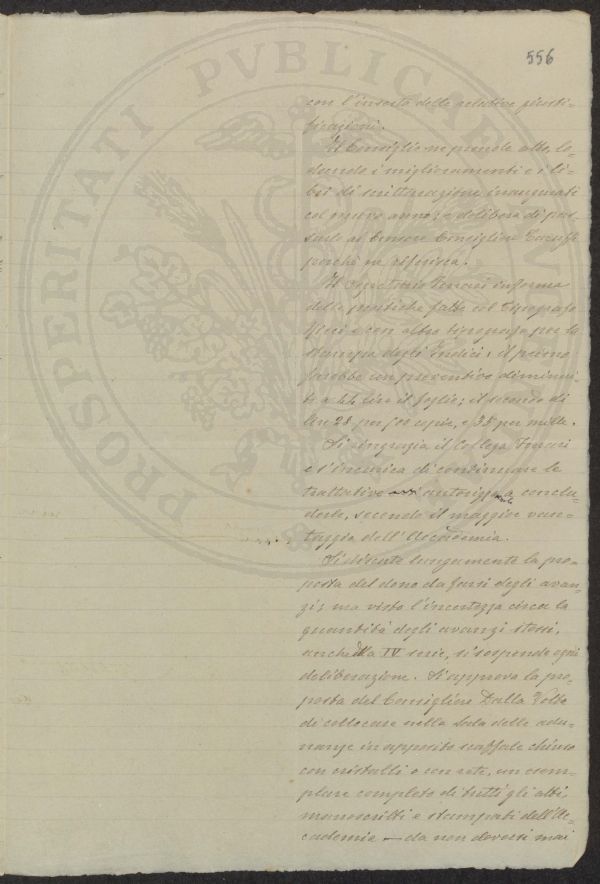 556
con l'inserto delle relative giusti-
ficazioni.
Il Consiglio ne prende atto, lo-
dando i miglioramenti e i li-
bri di scritturazione inaugurati
col nuovo anno; e delibera di pas-
sarle al Censore Consigliere
perchè ne riferisca.
Il Segretario informa
delle pratiche fatte col Tipografo
Ricci e con altro tipografo per la
stampa degli Indici; il primo
farebbe un preventivo diminui-
to a 44 lire il foglio; il secondo di
lire 28 per 500 copie, e 35 per mille.
Si ringrazia il Collega
e s'incarica di continuare le
trattative autorizzandolo a conclu-
derle, secondo il maggior van-
taggio dell'Accademia.
Si discute lungamente la pro-
posta del dono da farsi degli avan-
zi; ma visto l'incertezza circa la
quantità degli avanzi stessi,
anche della IV serie, si sospende ogni
deliberazione. Si approva la pro-
posta del Consigliere Dalla Volta
di collocare nella Sala delle adu-
nanze in apposito scaffale chiuso
con cristalli o con rete, un esem-
plare completo di tutti gli atti,
manoscritti e stampati dell'Ac-
cademia — da non doversi mai
PROSPERITATI PVBLICAE